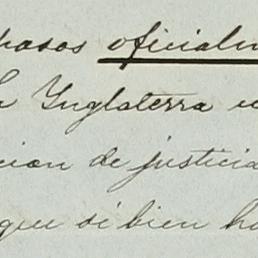 pasos oficialm
Inglaterra u
cion de justicia
que si bien ha